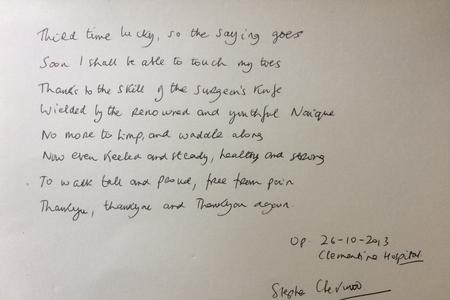 Third time lucky, so the saying goes
Soon I shall be able to touch my toes
Thanks to the skill of the surgeon's knife
Wielded by the renowned and youthful
No more to limp, and waddle along
Now even keeled and steady, healthy and strong
To walk tall and proud, free from pain
Thankyou, thankyou and Thankyou again.
Op. 26-10-2013
Clementine Hospital.